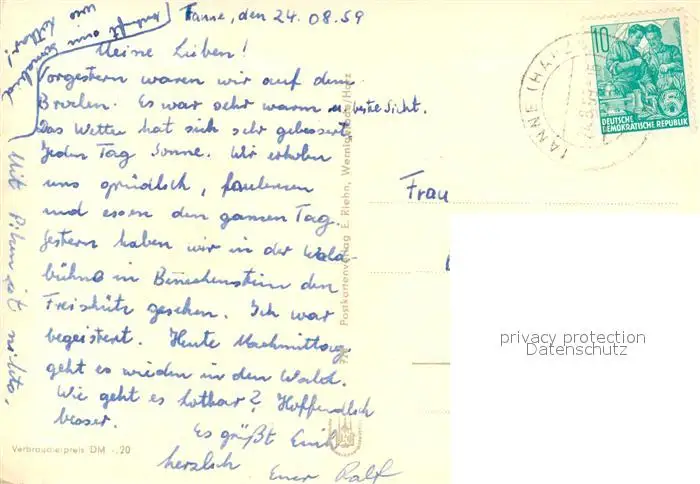 Tanne, den 24.08.59
Meine Lieben!
Vorgestern waren wir auf dem
Brocken. Es war sehr warm u. beste Sicht.
Das Wetter hat sich sehr gebessert,
Jeden Tag Sonne. Wir erholen
uns gründlich, faulenzen
und essen den ganzen Tag.
Gestern haben wir in der Wald-
bühne in Benneckenstein den
Freischütz gesehen. Ich war
begeistert. Heute Nachmittag
geht es wieder in den Wald.
Wie geht es Lothar? Hoffendlich
besser.
Es grüßt Euch
herzlich
Euer Ralf
Mit Pilzen ist nichts.
am Sonnabend
uns
Verbraucherpreis DM -.20
Postkartenverlag E. Riehn, Wernigerode/Harz
TANNE (HARZ)
10
DEUTSCHE
DEMOKRATISCHE REPUBLIK
5
Frau
privacy protection
Datenschutz